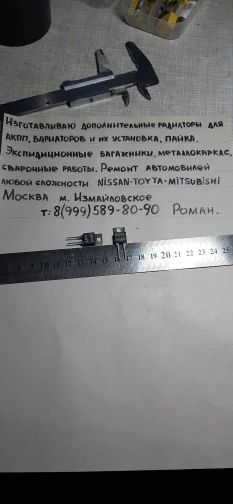 Изготавливаю дополнительные радиаторы для
АКПП, вариаторов и их установка, пайка.
Экспидиционные багажники, металлокаркас,
сварочные работы. Ремонт автомобилей
любой сложности NISSAN-TOYTA-MITSUBISHI
Москва м. Измайловское
т: 8(999)589-80-90 Роман.
7 8 9 10 11 12 13 14 15 16 17 18 19 20 21 22 23 24 25